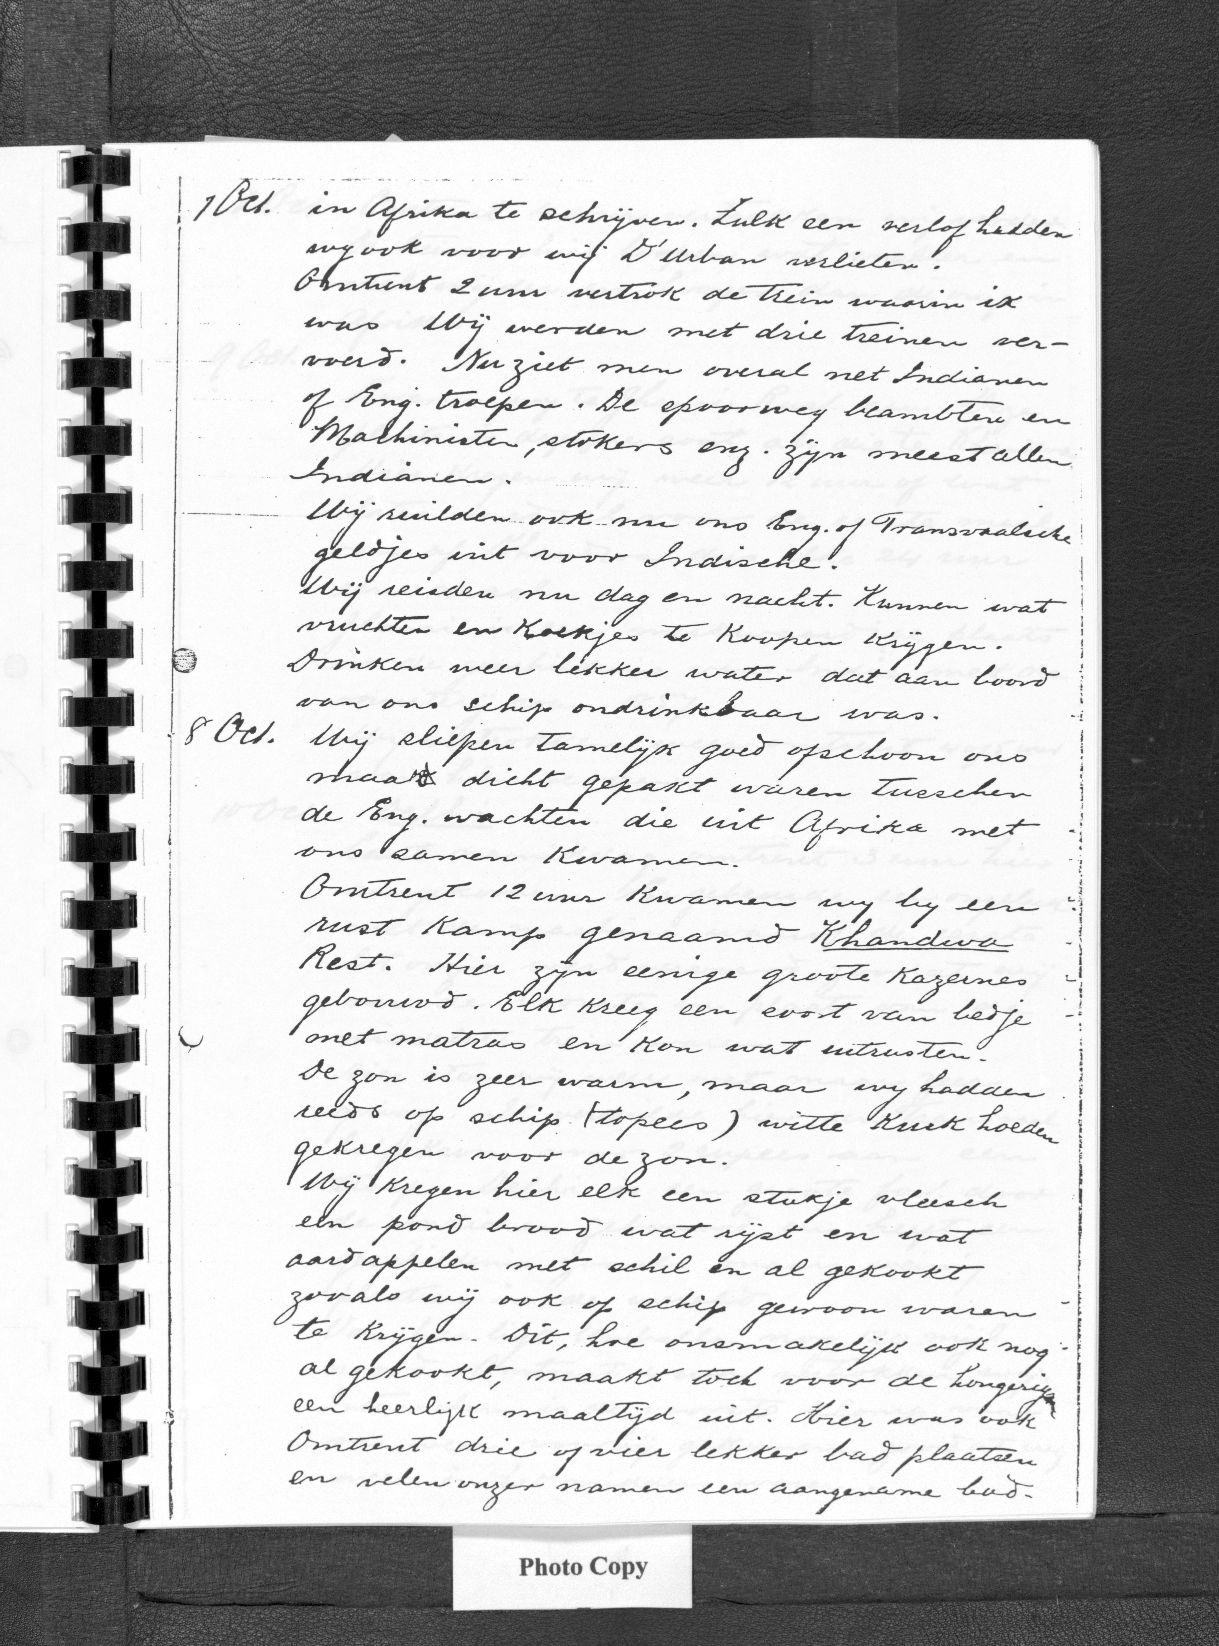 7 Oct. in Afrika te schrijven. Zulk een verlof hadden
wy ook voor wij D'Urban verlieten.
Omtrent 2 uur vertrok de trein waarin ik
was Wij werden met drie treinen ver-
voerd. Nu ziet men overal net Indianen
of Eng. troepen. De spoorweg beambten en
Machinisten, stokers enz. zijn meest allen
Indianen.
Wij ruilden ook nu ons Eng. of Transvaalsche
geldjes uit voor Indische.
Wij reisden nu dag en nacht. Kunnen wat
vruchten en Koekjes te Koopen Krijgen.
Drinken weer lekker water dat aan boord
van ons schip ondrinkbaar was.
8 Oct. Wij sliepen tamelijk goed ofschoon ons
maar dicht gepakt waren tusschen
de Eng. wachten die uit Afrika met
ons samen Kwamen.
Omtrent 12 uur Kwamen wy by een
rust Kamp genaamd Khandwa
Rest. Hier zijn eenige groote Kazernes
gebouwd. Elk Kreeg een soort van bedje
met matras en Kon wat uitrusten.
De zon is zeer warm, maar wy hadden
reeds op schip (topees) witte Kurk hoeden
gekregen voor de zon.
Wij Kregen hier elk een stukje vleesch
een pond brood wat rijst en wat
aardappelen met schil en al gekookt
zooals wij ook op schip gewoon waren
te Krijgen. Dit, hoe onsmakelijk ook nog
al gekookt, maakt toch voor de hongerigen
een heerlijk maaltijd uit. Hier was ook
Omtrent drie of vier lekker bad plaatsen
en velen onzer namen een aangename bad.
Photo Copy